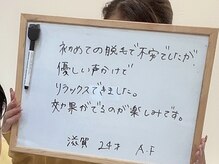 初めての脱毛で不安でしたが
優しい声かけで
リラックスできました。
効果がでるのが楽しみです。
滋賀 24才 A.F